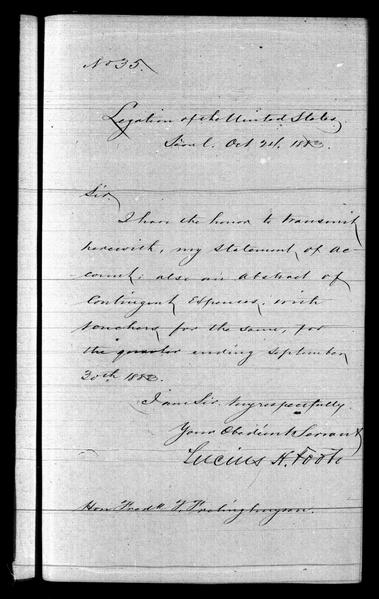 No 35.
Legation of the United States,
Söul. Oct 24. 1883.
Sir.
I have the honor to transmit
herewith, my statement of ac-
count; also an abstract of
Contingent Expenses, with
vouchers for the same, for
the quarter ending September
30th 1883.
I am Sir. Very respectfully
Your Obedient Servant
Lucius H. Foote
Hon Fredk T. Frelinghuysen.